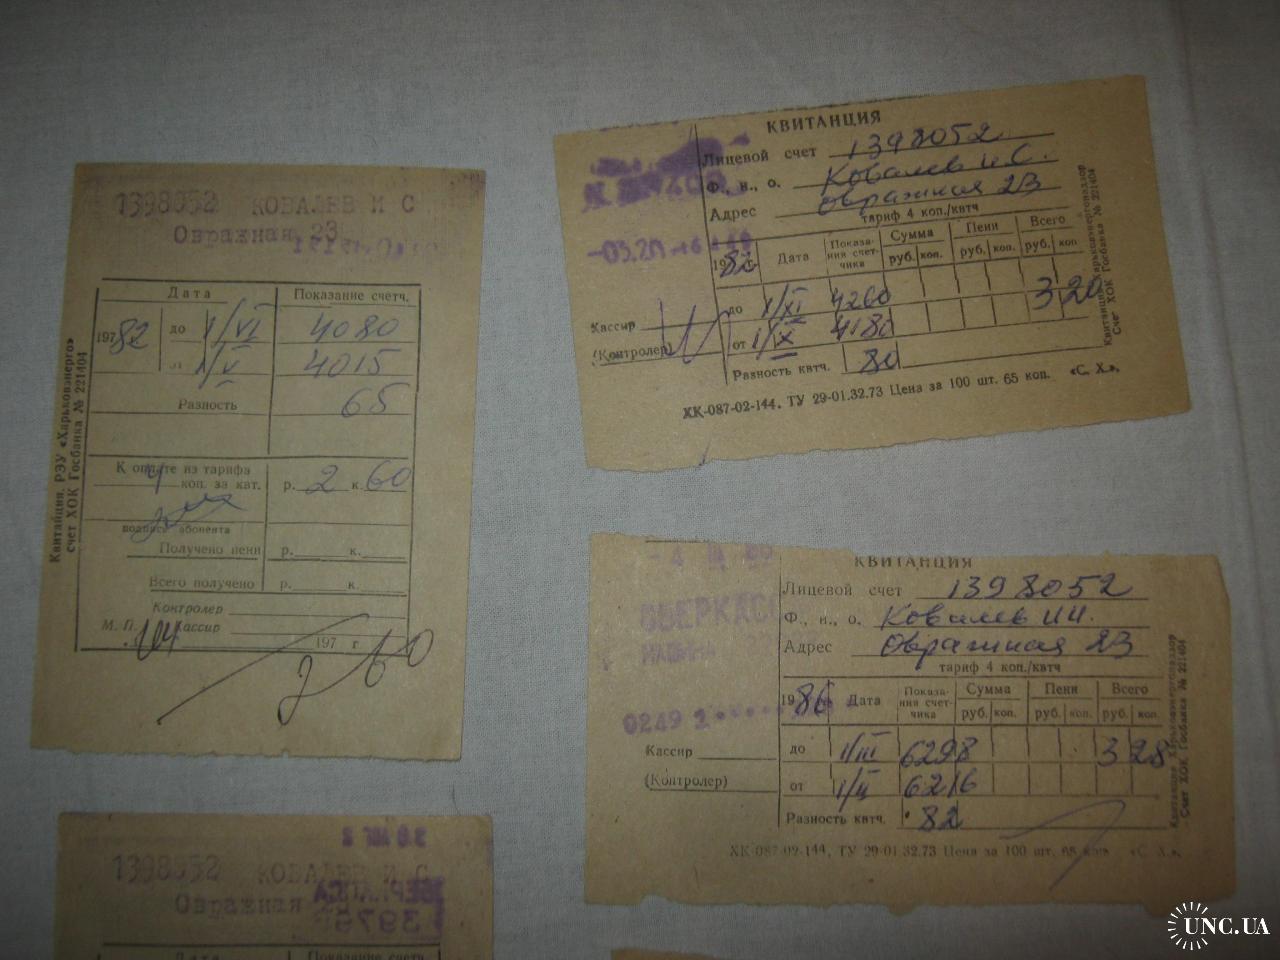 1398052 КОВАЛЕВ И С
Овражная 23
Дата Показание счетч.
1982 до 1/VI 4080
от 1/V 4015
Разность 65
К оплате из тарифа
4 коп. за квт. р. 2 к. 60
подпись абонента
Получено пени р. к.
Всего получено р. к.
Контролер
М. П. Кассир
197 г
2 60
Квитанция. РЭУ «Харьковэнерго»
счет ХОК Госбанка № 221404
КВИТАНЦИЯ
Лицевой счет 1398052
Ф., и., о. Ковалев И.С.
Адрес Овражная 23
тариф 4 коп./квтч
1982 г. Дата Показания счетчика Сумма Пени Всего
руб. коп. руб. коп. руб. коп
до 1/XI 4260 3 20
от 1/X 4180
Разность квтч. 80
Кассир
(Контролер)
ХК-087-02-144. ТУ 29-01.32.73 Цена за 100 шт. 65 коп. «С. Х.»,
Квитанция Харьковэнергонадзор
Счет ХОК Госбанка № 221404
СБЕРКАСС
МАШИНА
0249
КВИТАНЦИЯ
Лицевой счет 1398052
Ф., и., о. Ковалев И.И.
Адрес Овражная 23
тариф 4 коп./квтч
1986 Дата Показания счетчика Сумма Пени Всего
руб. коп. руб. коп. руб. коп.
до 1/III 6298 3 28
от 1/II 6216
Разность квтч. 82
Кассир
(Контролер)
ХК-087-02-144, ТУ 29-01.32.73 Цена за 100 шт. 65 коп. «С. Х.»,
Квитанция Харьковэнергонадзор
Счет ХОК Госбанка № 221404
1398052 КОВАЛЕВ И С
Овражная
Дата Показание счетч.
UNC.UA